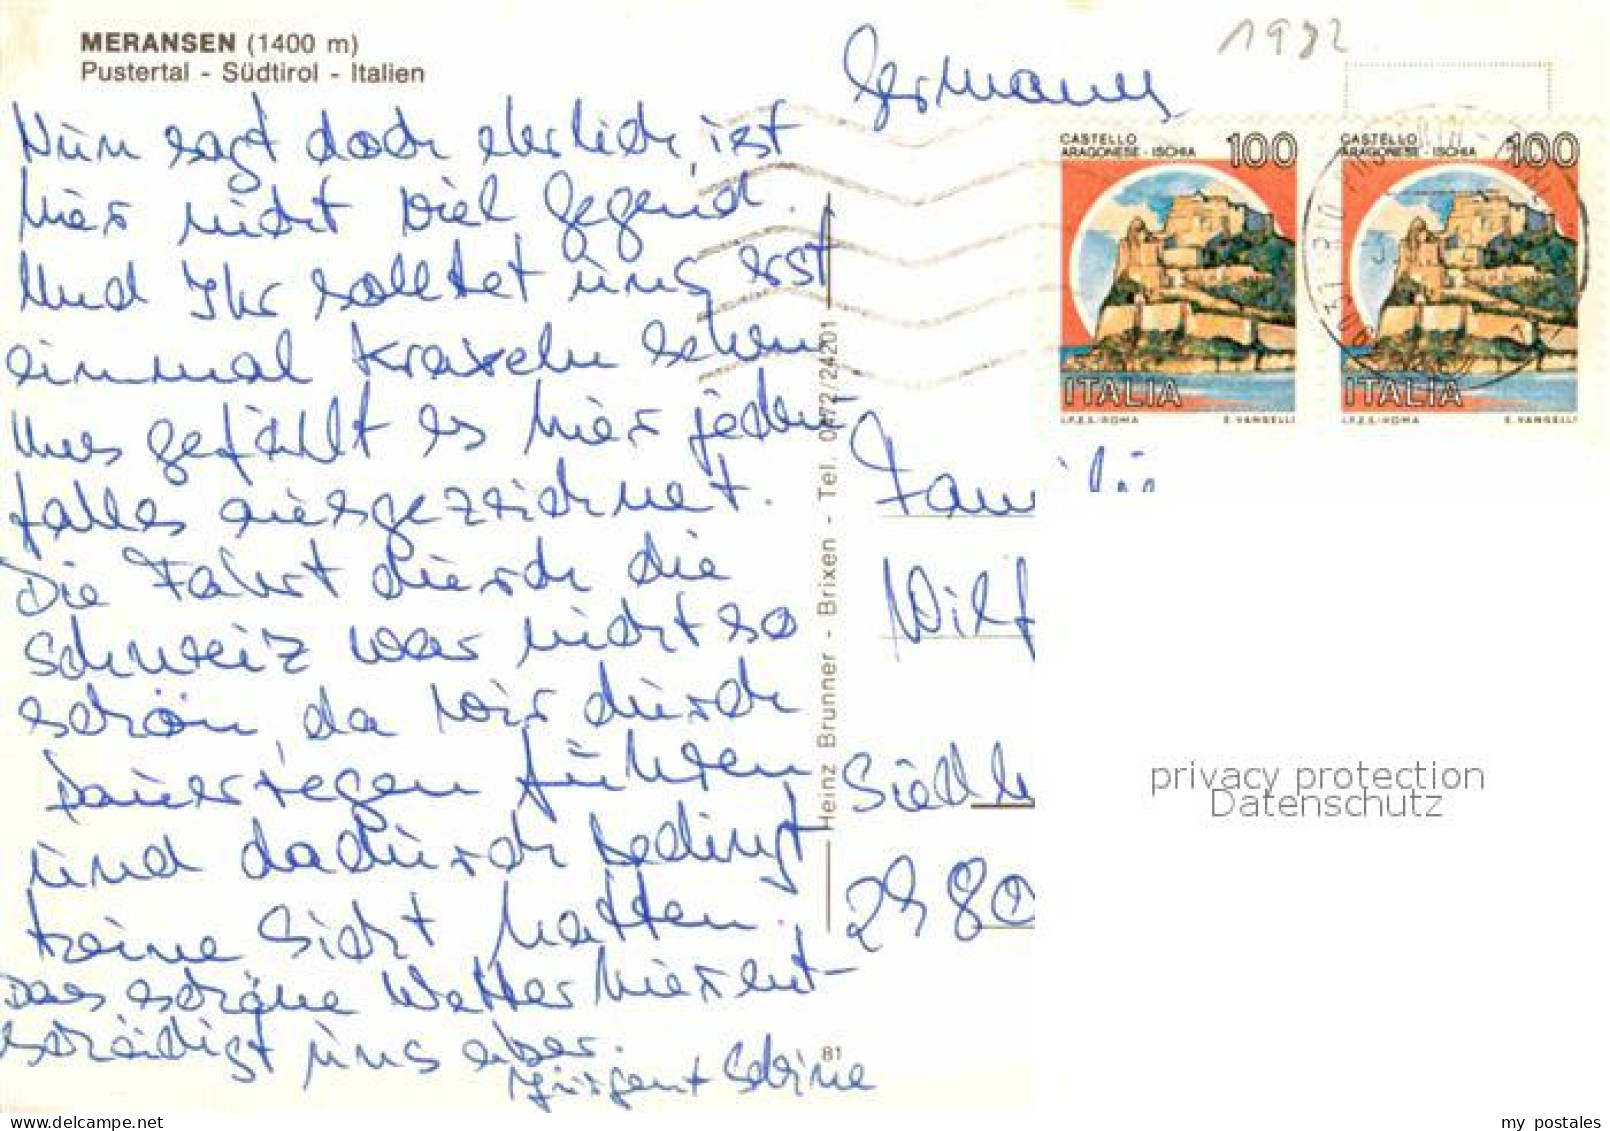 MERANSEN (1400 m)
Pustertal - Südtirol - Italien
Nun sagt doch ehrlich, ist
hier nicht viel Gegend.
Und Ihr solltet uns erst
einmal kraxeln sehen!
Uns gefällt es hier jeden-
falls ausgezeichnet.
Die Fahrt durch die
Schweiz war nicht so
schön, da wir durch
Dauerregen fuhren
und dadurch bedingt
keine Sicht hatten.
Das schöne Wetter hier ent-
schädigt uns aber.
Jürgen + Sabine
81
Heinz Brunner - Brixen - Tel. 0472/24201
1982
Germany
CASTELLO
ARAGONESE - ISCHIA 100
ITALIA
I.P.Z.S. - ROMA E. VANGELLI
CASTELLO
ARAGONESE - ISCHIA 100
ITALIA
I.P.Z.S. - ROMA E. VANGELLI
Familie
Wilf
Siedl
2980
privacy protection
Datenschutz
my postales